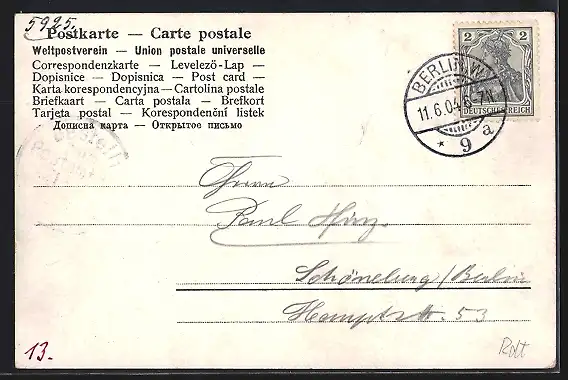 5925.
Postkarte — Carte postale
Weltpostverein — Union postale universelle
Correspondenzkarte — Levelezö-Lap —
Dopisnice — Dopisnica — Post card —
Karta korespondencyjna — Cartolina postale
Briefkaart — Carta postala — Brefkort
Tarjeta postal — Korespondenční listek
Дописна карта — Открытое письмо
2 2
DEUTSCHES REICH
BERLIN W.
11.6.04. 6-7N.
* 9 a
Herrn
Paul
Schöneberg/Berlin
Hauptstr. 53
13.